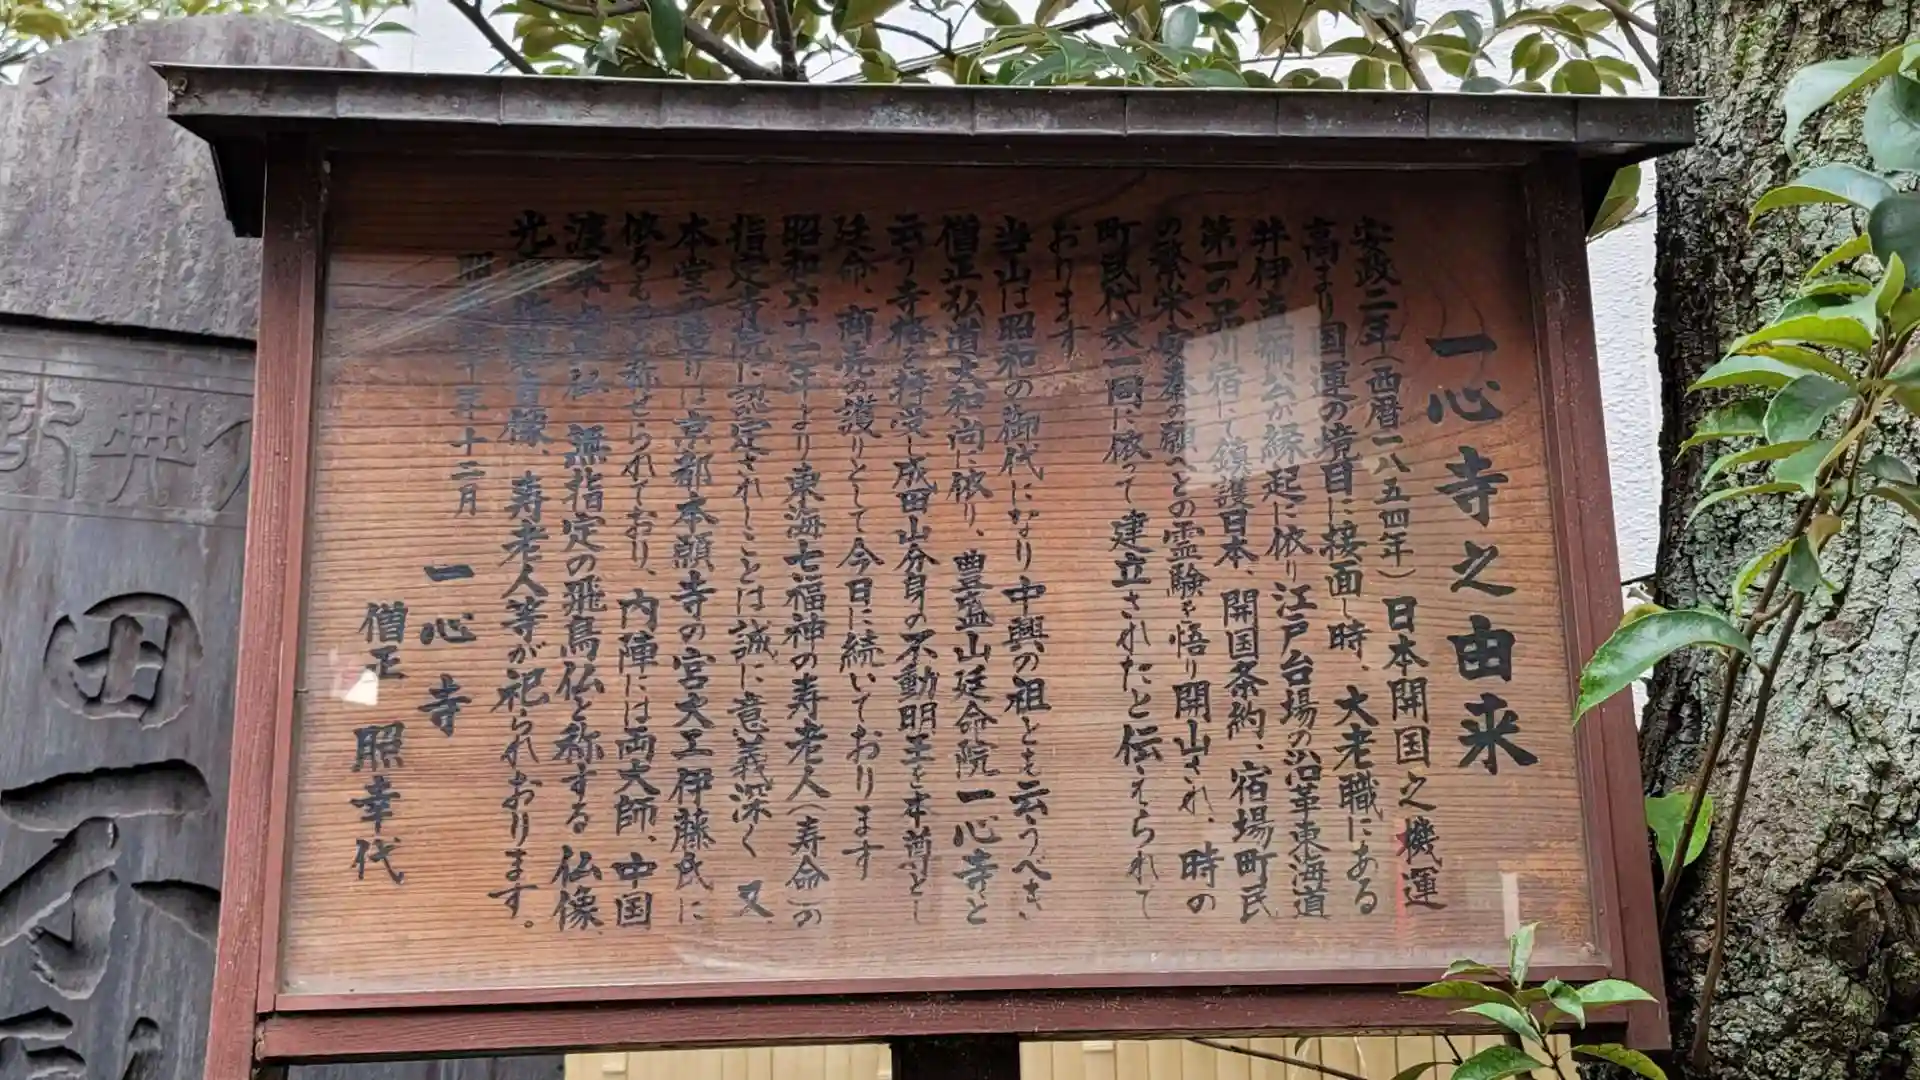 一心寺之由来
安政二年（西暦一八五四年）日本開国之機運
高まり国運の境目に接面し時、大老職にある
井伊直弼公が縁起に依り江戸台場の沿革東海道
第一の品川宿にて鎮護日本、開国条約、宿場町民
の繁栄安泰の願へとの霊験を悟り開山され、時の
町民代表一同に依って建立されたと伝えられて
おります
当山は昭和の御代になり中興の祖とも云うべき
僧正弘道大和尚に依り、豊盛山延命院一心寺と
云う寺格を拝受し成田山分身の不動明王を本尊とし
延命、商売の護りとして今日に続いております
昭和六十二年より東海七福神の寿老人（寿命）の
指定寺院に認定されしことは誠に意義深く又、
本堂の造りは京都本願寺の宮大工伊藤氏に
依るものと称せられており、内陣には両大師、中国
渡来 仏 無指定の飛鳥仏と称する仏像、
光 音像、寿老人等が祀られおります。
昭 十年十二月
一心寺
僧正 照幸代
田
不